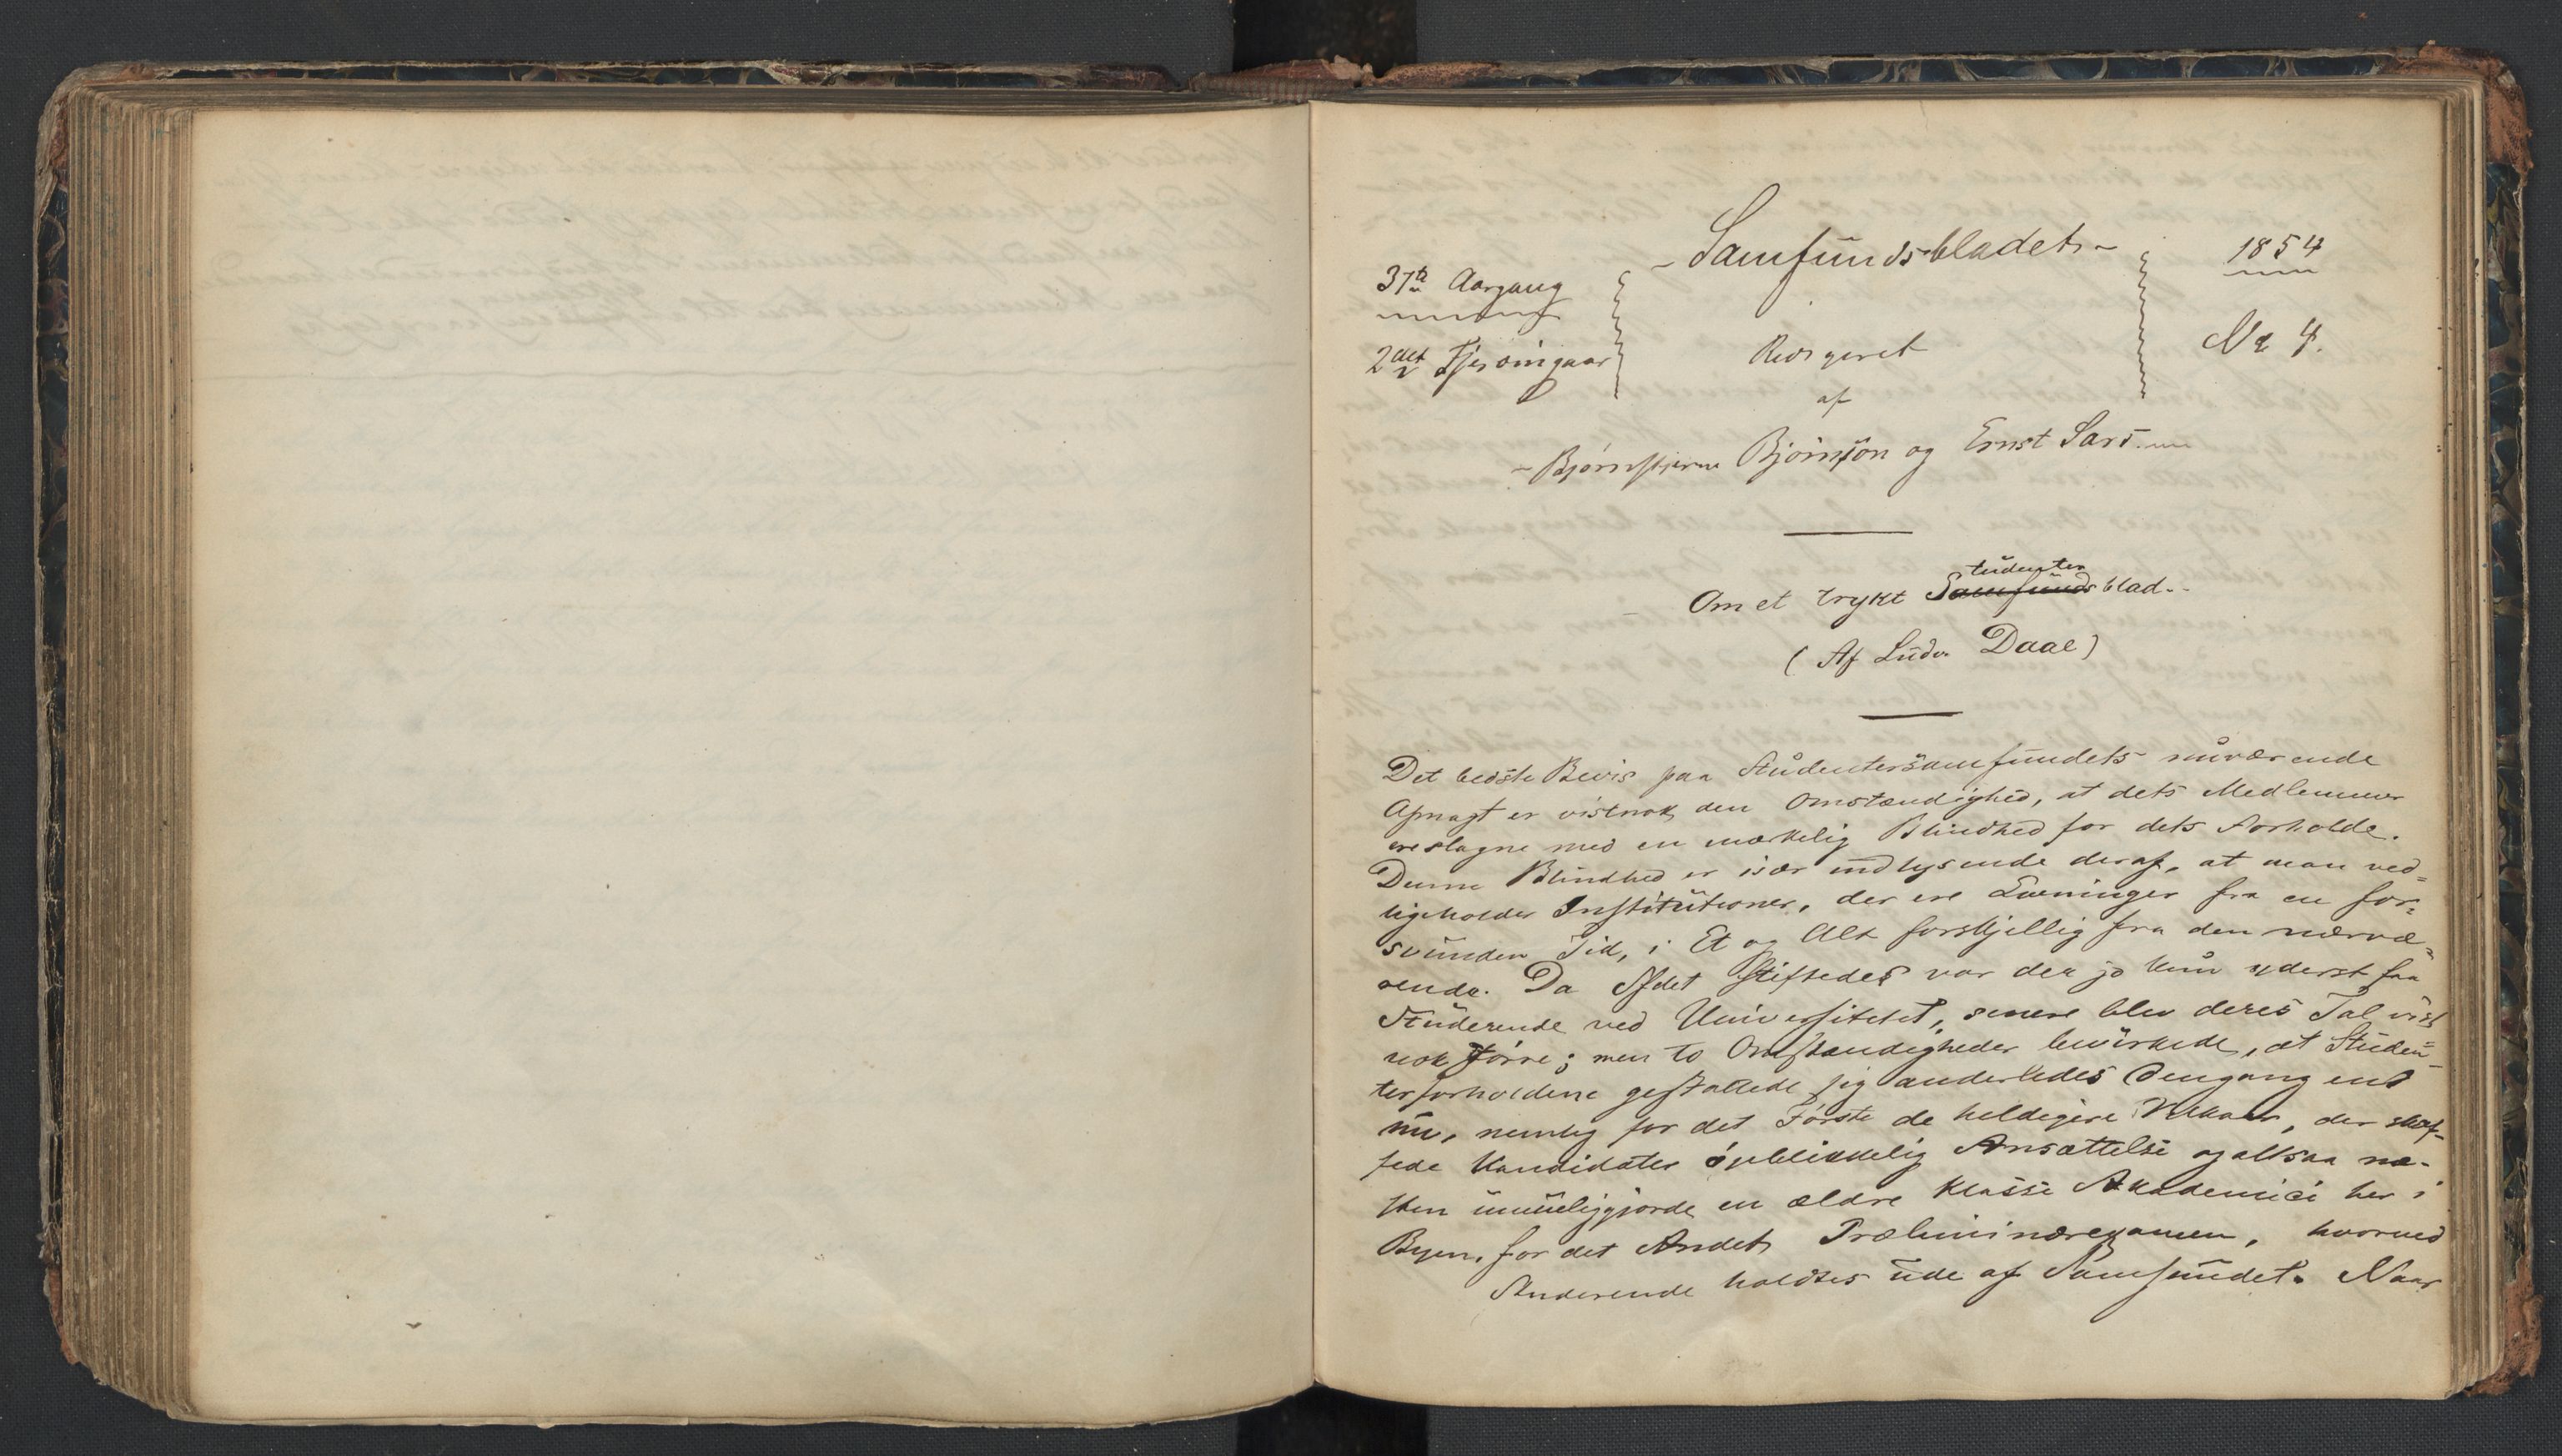 - Samfundsbladet -
1854
37te Aargang
2det Fjerdingaar
Redigeret
No 4.
af
- Bjørnstjerne Bjørnson og Ernst Sars.
tudenter
Om et trykt Samfundsblad.
(Af Ludv. Daae)
Det bedste Bevis paa Studentersamfundets nuværende
Afmagt er vistnok den Omstændighed, at dets Medlemmer
ere slagne med en mærkelig Blindhed for dets Forholde.
Denne Blindhed er især indlysende deraf, at man ved=
ligeholder Institutioner, der ere Levninger fra en for=
svunden Tid, i Et og Alt forskjellig fra den nærvæ=
rende. Da Sfdet stiftedes var der jo kun yderst faa
Studerende ved Universitetet, senere blev deres Tal vist
nok større; men to Omstændigheder bevirkede, at Studen=
terforholdene gestaltede sig anderledes dengang end
nu, nemlig for det Første de heldigere Vilkaar, der skaf=
fede Kandidater øieblikkelig Ansættelse og altsaa næ-
sten umueliggjorde en ældre Klasse Akademici her i
Byen, for det Andet Præliminærexamen, hvorved
Studerende holdtes ude af Samfundet. Naar